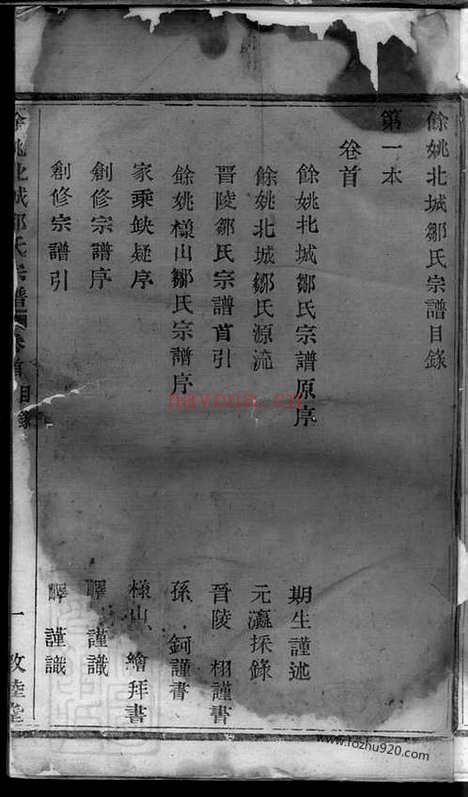 餘姚北城鄒氏宗譜目錄
第一本
卷首
餘姚北城鄒氏宗譜原序 期生謹述
餘姚北城鄒氏源流 元瀛採錄
晉陵鄒氏宗譜首引 晉陵 栩謹書
餘姚樣山鄒氏宗譜序 孫 鈳謹書
家乘缺疑序 樣山 繪拜書
創修宗譜序 謹識
創修宗譜引 謹識
餘姚北城鄒氏宗譜 卷首 目錄 一 敦睦堂
nayona.cn
www.fozhu920.com